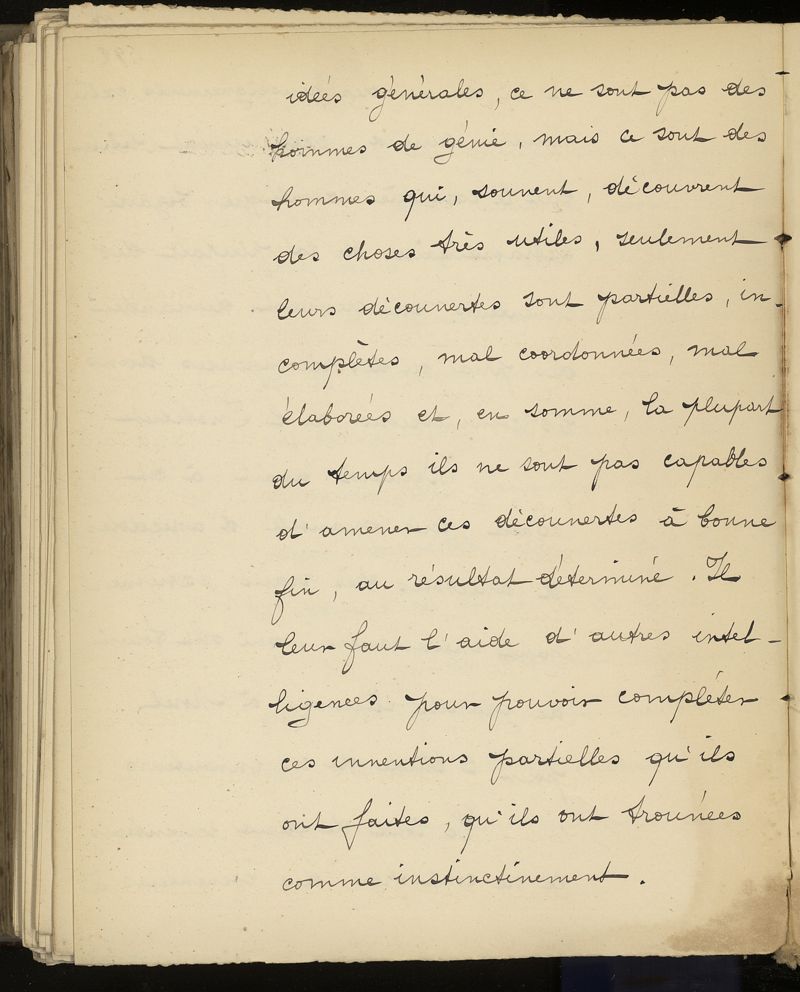 idées générales, ce ne sont pas des
hommes de génie, mais ce sont des
hommes qui, souvent, découvrent
des choses très utiles, seulement
leurs découvertes sont partielles, in-
complètes, mal coordonnées, mal
élaborées et, en somme, la plupart
du temps ils ne sont pas capables
d'amener ces découvertes à bonne
fin, au résultat déterminé. Il
leur faut l'aide d'autres intel-
ligences pour pouvoir compléter
ces inventions partielles qu'ils
ont faites, qu'ils ont trouvées
comme instinctivement.